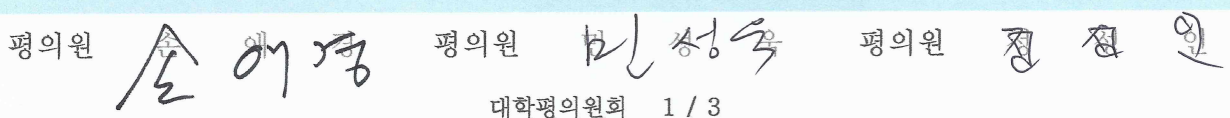 평의원 손애경 평의원 민성욱 평의원 정정인
대학평의원회 1 / 3